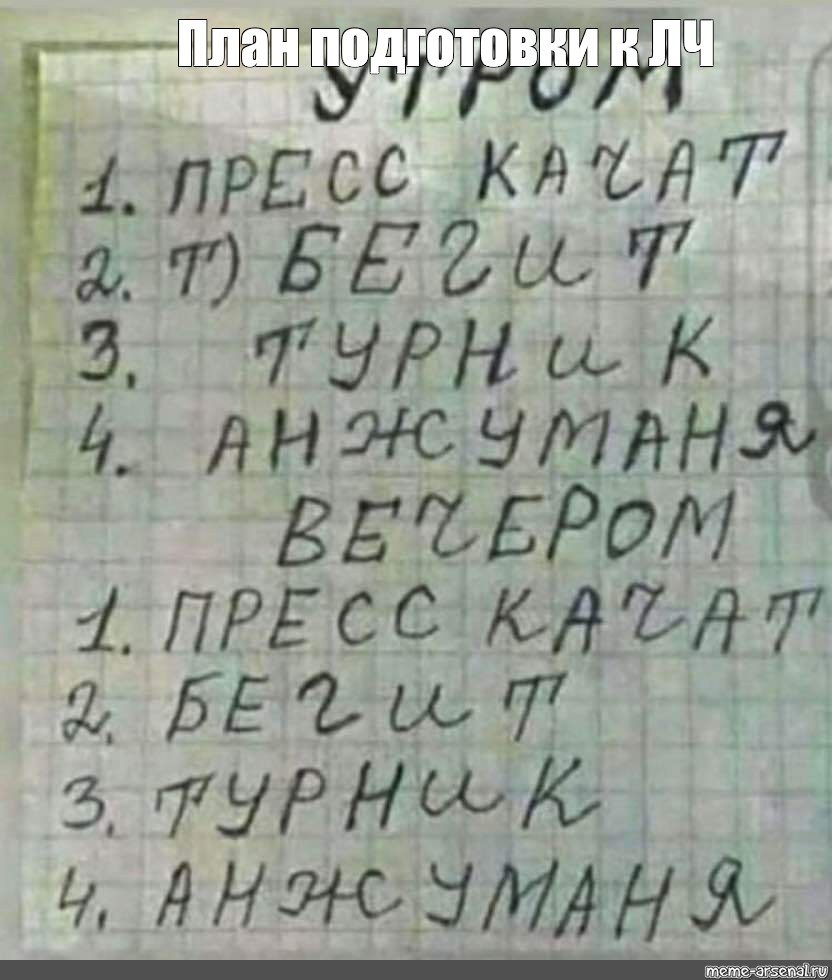 План подготовки к ЛЧ
УТРОМ
1. ПРЕСС КАЧАТ
2. Т) БЕГИТ
3. ТУРНИК
4. АНЖУМАНЯ
ВЕЧЕРОМ
1. ПРЕСС КАЧАТ
2. БЕГИТ
3. ТУРНИК
4. АНЖУМАНЯ
meme-arsenal.ru